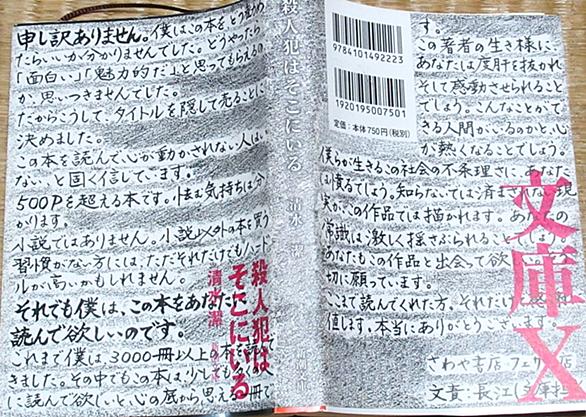 申し訳ありません。僕はこの本をどう勧め
たらいいか分かりませんでした。どうやったら
「面白い」「魅力的だ」と思ってもらえるの
か、思いつきませんでした。
だからこうして、タイトルを隠して売ることに
決めました。
この本を読んで、心が動かされない人はい
ない、と固く信じています。
500Pを超える本です。怯む気持ちは分
かります。
小説ではありません。小説以外の本を買う
習慣がない方には、ただそれだけでもハード
ルが高いかもしれません。
それでも僕は、この本をあなたに
読んで欲しいのです。
これまで僕は、3000冊以上の本を読んで
きました。その中でもこの本は、少しでも多くの人
に読んで欲しいと、心の底から思える一冊で
殺人犯は
そこにいる
清水潔
殺人犯はそこにいる
清水 潔
新潮文庫
9784101492223
1920195007501
定価:本体750円(税別)
す。
この著者の生き様に
あなたは度肝を抜かれ
そして感動させられること
でしょう。こんなことがで
きる人間がいるのかと、心
が熱くなることでしょう。
僕らが生きるこの社会の不条理さに、あなた
は憤るでしょう。知らないでは済まされない現
実が、この作品では描かれます。あなたの
常識は激しく揺さぶられることでしょう。
あなたもこの作品と出会って欲
切に願っています。
ここまで読んでくれた方、それだけ
値します。本当にありがとうございます。
さわや書店フェザン店
文責:長江(文庫担
文庫X